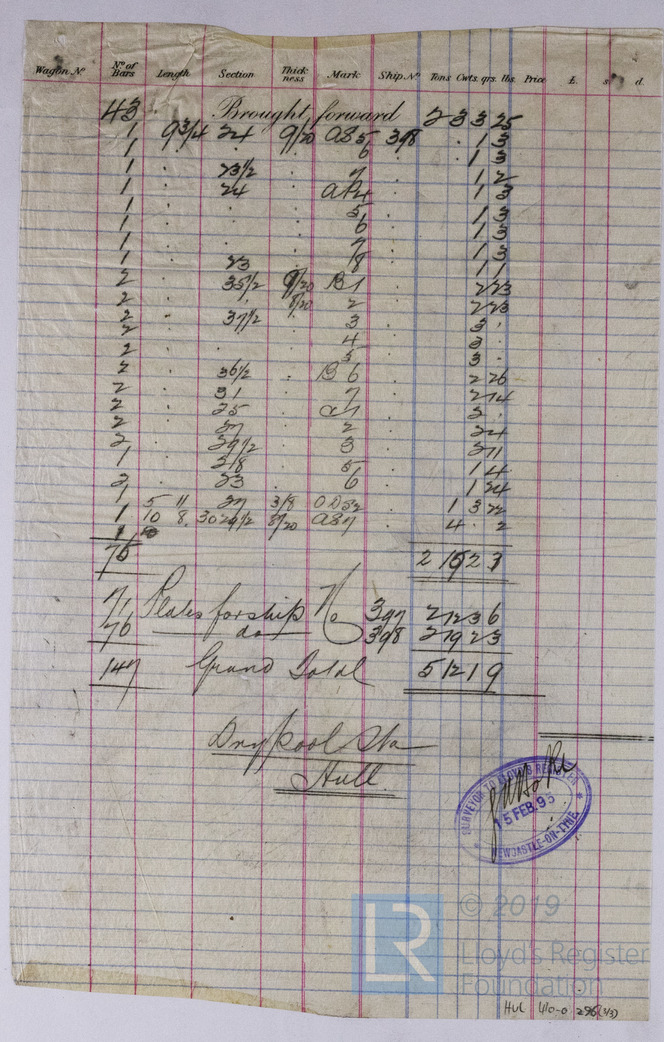 Wagon No No of Bars Length Section Thickness Mark Ship No Tons Cwts. qrs. lbs. Price £. s. d.
43 Brought forward 2 3 3 25
1 9 3/4 24 9/20 398 1 3
1 . . 6 . 1 3
1 . 23 1/2 7 . 1 2
1 . 24 1 3
1 . . 5 . 1 3
1 . . 6 . 1 3
1 . . 7 . 1 3
1 . 23 8 . 1 1
2 . 35 1/2 9/20 B1 . 2 23
2 . 8/20 2 . 2 23
2 . 37 1/2 3 . 3 .
2 . . 4 . 3 .
2 . . 5 . 3 .
2 . 36 1/2 . B 6 . 2 26
2 . 31 7 . 2 14
2 . 25 . 2 .
2 . 27 2 . 2 4
2 . 29 1/2 3 . 2 11
1 . 5 . 1 4
2 . 23 6 . 1 24
1 5 11 27 3/8 . 1 3 22
1 10 8 8/20 . 4 . 2
76
71 Plates for ship No 397 2 12 3 6
76 do 398 2 19 2 3
147 Grand Total 5 12 1 9
Drypool Sta
Hull
SURVEYOR TO LLOYD'S REGISTER
15 FEB. 93
NEWCASTLE-ON-TYNE
LR
© 2019
Lloyd's Register
Foundation
296 (3/3)